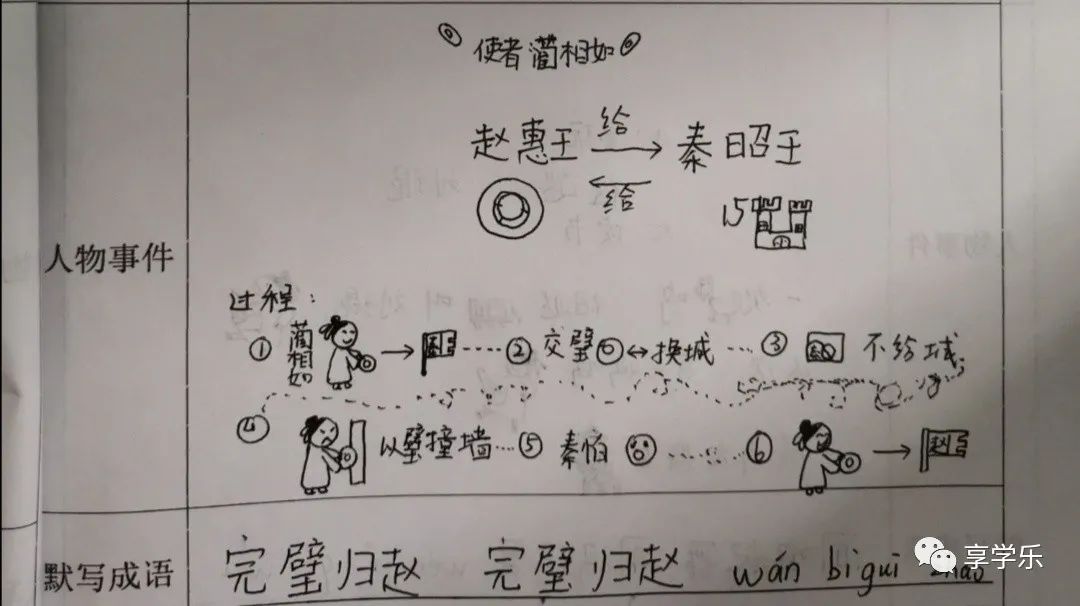 使者蔺相如
赵惠王 给 秦昭王
给
15
人物事件
过程:
① 蔺相如 → 国 ② 交璧 ↔ 换城 ③ 不给城
④ 以璧撞墙 ⑤ 秦怕 ⑥ → 赵
默写成语
完璧归赵 完璧归赵 wán bì guī zhào
享学乐